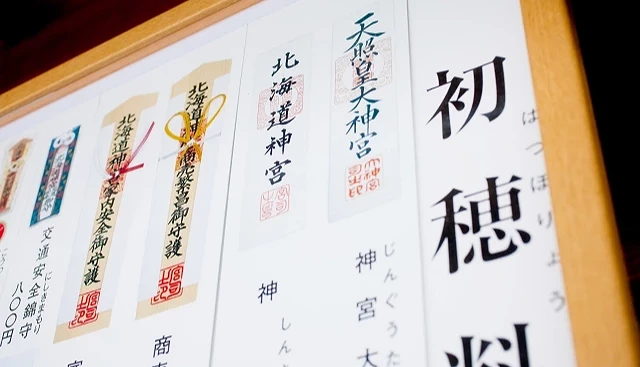 初穂料
はつほりょう
天照皇大神宮
神宮大
じんぐうた
北海道神宮
神
しん
北海道神宮商売繁昌御守護
商
北海道神宮家内安全御守護
交通安全錦守
にしきまもり
八〇〇円